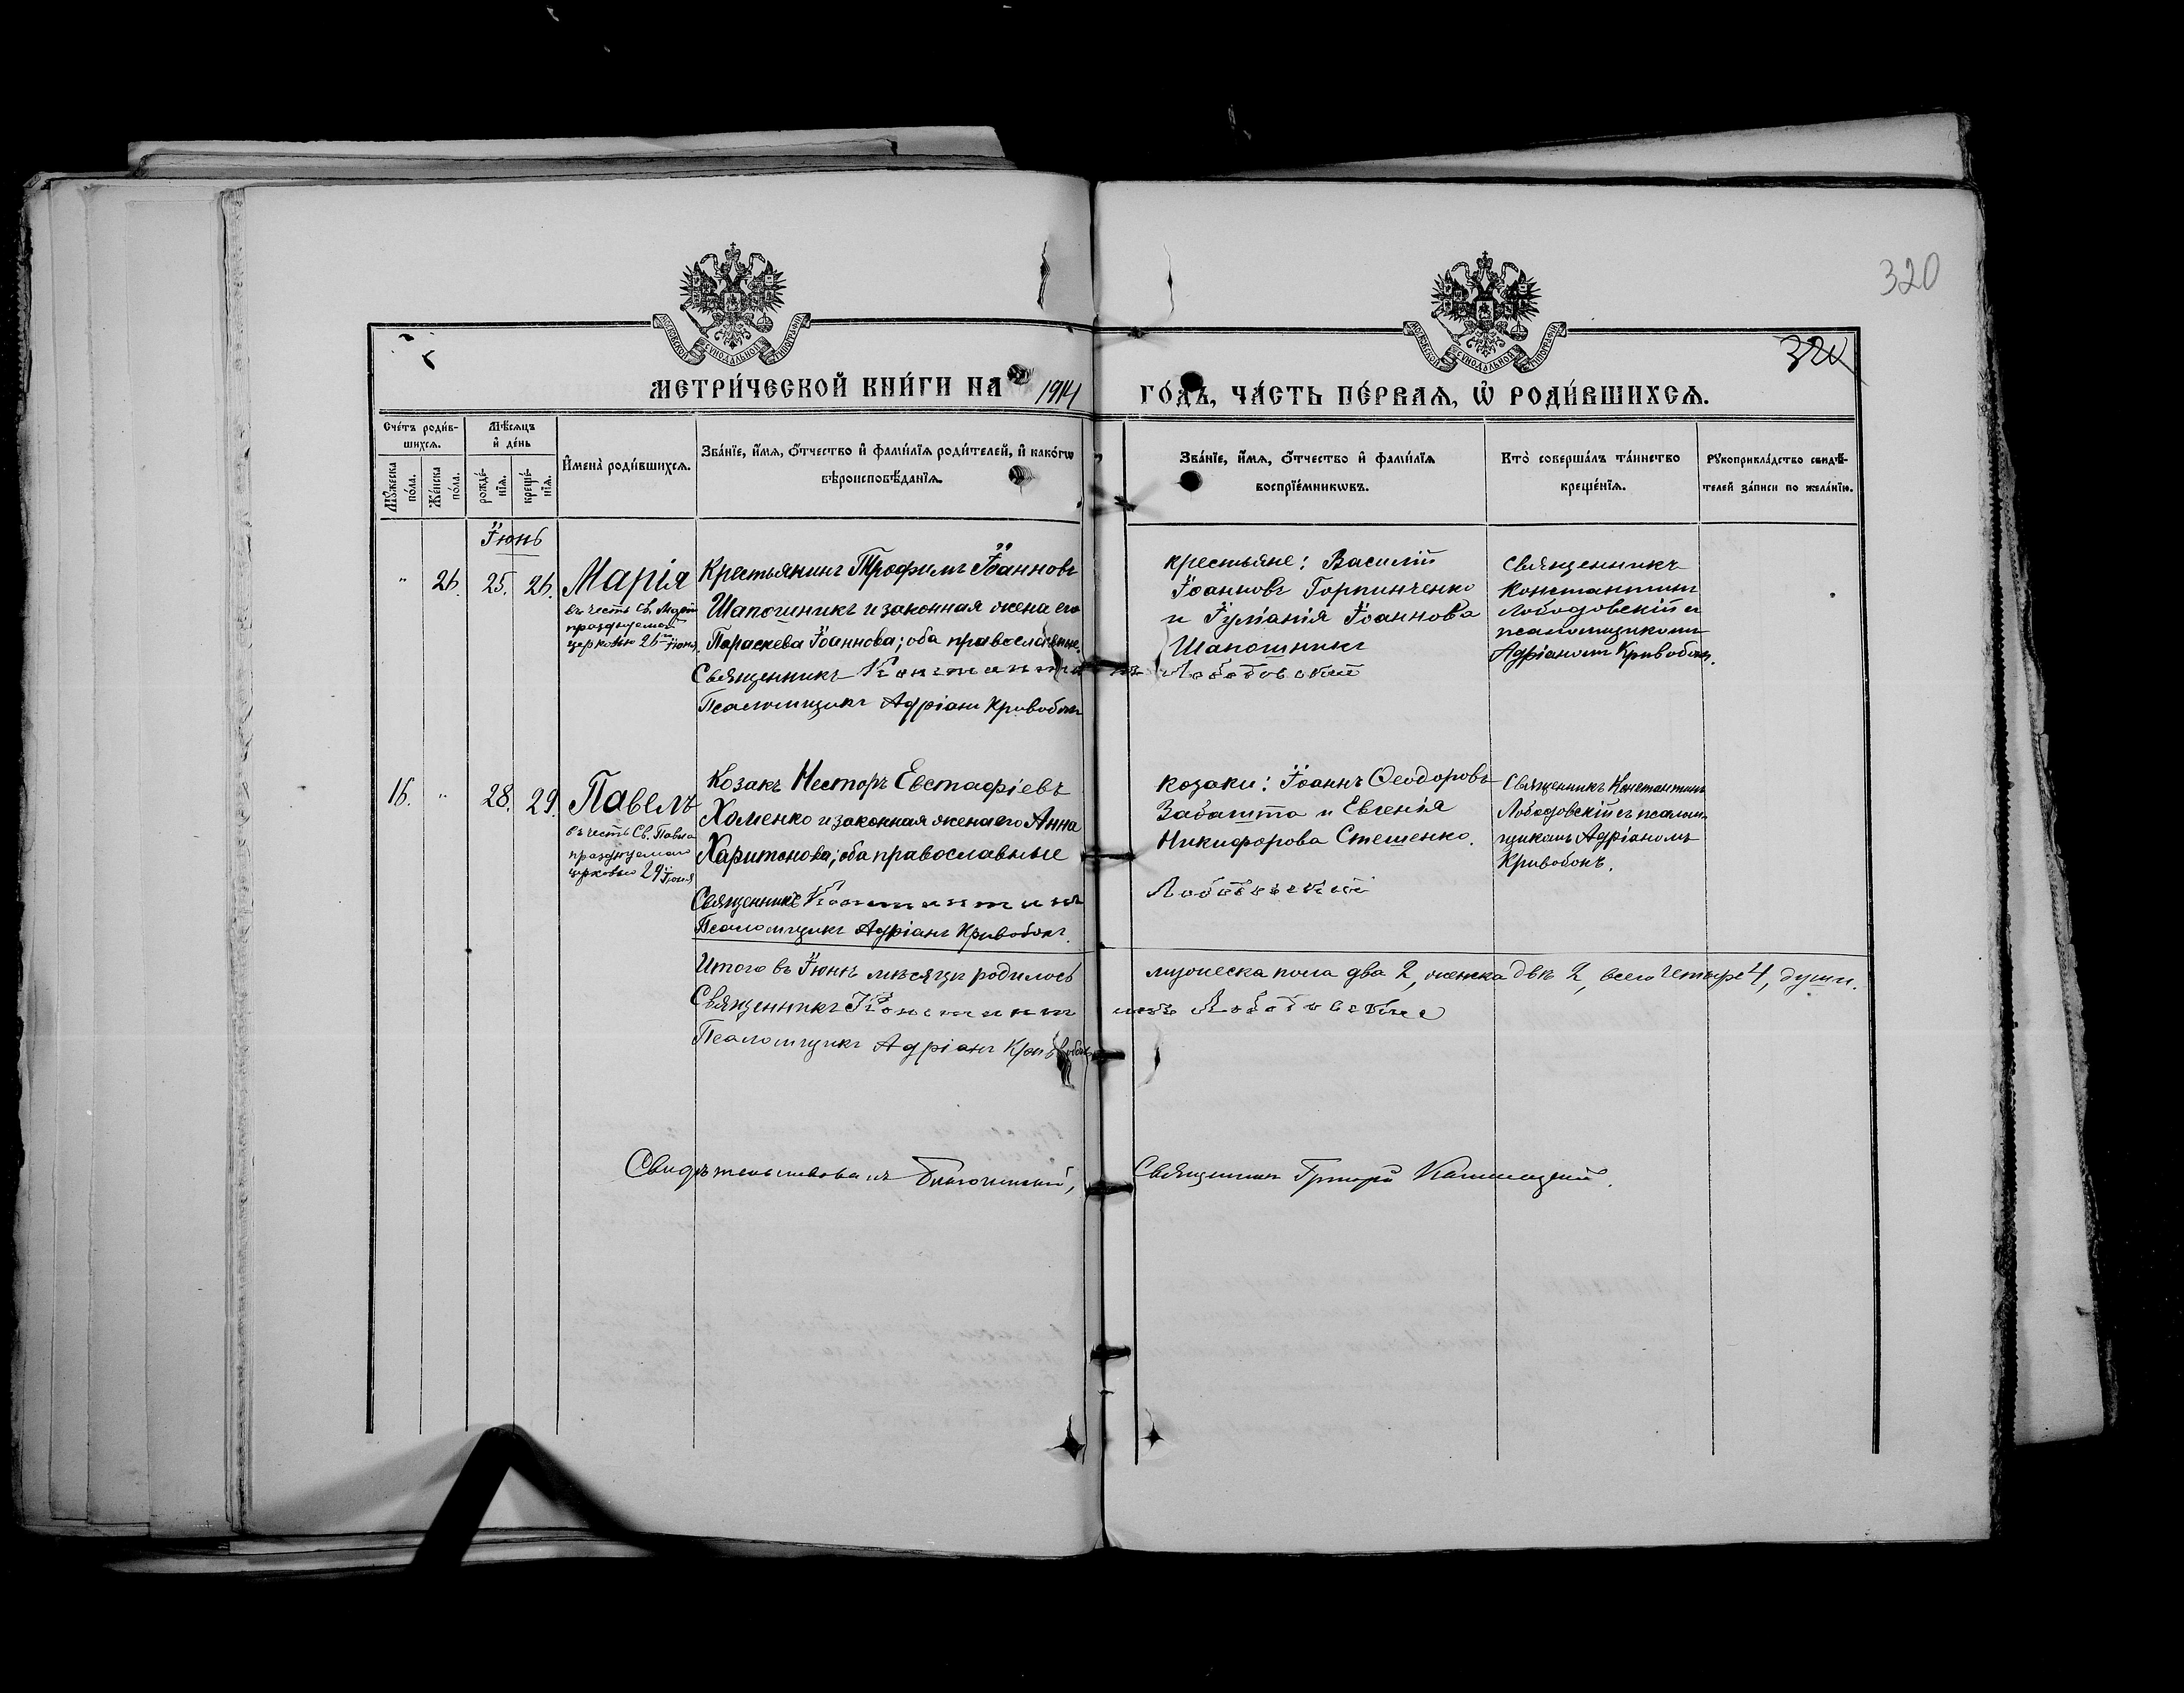 320
320
МОСКОВСКОЙ СѴНОДАЛЬНОЙ ТИПОГРАФІИ
МОСКОВСКОЙ СѴНОДАЛЬНОЙ ТИПОГРАФІИ
МЕТРИ́ЧЕСКОЙ КНИ́ГИ НА 1914 ГО́ДЪ, ЧА́СТЬ ПЕ́РВАѦ, Ѽ РОДИ́ВШИХСѦ.
Сче́тъ роди́вшихсѧ.
Мꙋ́жеска по́ла.
Же́нска по́ла.
Мѣ́сѧцъ и҆ де́нь
рожде́нїѧ.
креще́нїѧ.
И҆мена̀ роди́вшихсѧ.
Зва́нїе, и҆́мѧ, ѻ҆́тчество и҆ фами́лїѧ роди́телей, и҆ како́гѡ
вѣроисповѣ́данїѧ.
Зва́нїе, и҆́мѧ, ѻ҆́тчество и҆ фами́лїѧ
воспрїе́мникѡвъ.
Кто̀ соверша́лъ та́инство
креще́нїѧ.
Рꙋкоприкла́дство свидѣ́-
телей за́писи по жела́нїю.
Іюнь
" 26. 25. 26. Марія
въ честь Св. Маріи
празднуемой
церковью 26го Іюня.
Крестьянинъ Трофимъ Іоанновъ
Шапошникъ и законная жена его
Параскева Іоаннова; оба православные.
Священникъ Константинъ Лободовскій
Псаломщикъ Адріанъ Кривобокъ
крестьяне: Василій
Іоанновъ Горпинченко
и Іуліанія Іоаннова
Шапошникъ
Священникъ
Константинъ
Лободовскій съ
псаломщикомъ
Адріаномъ Кривобокъ.
16. " 28. 29. Павелъ
въ честь Св. Павла
празднуемаго
церковью 29 Іюня
Козакъ Несторъ Евстафіевъ
Хоменко и законная жена его Анна
Харитонова; оба православные
Священникъ Константинъ Лободовскій
Псаломщикъ Адріанъ Кривобокъ.
козаки: Іоаннъ Ѳеодоровъ
Забашта и Евгенія
Никифорова Стешенко.
Священникъ Константинъ
Лободовскій съ псаломщикомъ Адріаномъ
Кривобокъ.
Итого въ Іюнѣ мѣсяцѣ родилось мужеска пола два 2, женска двѣ 2, всего четыре 4, души.
Священникъ Константинъ Лободовскій
Псаломщикъ Адріанъ Кривобокъ
Свидѣтельствовалъ Благочинный, Священникъ Григорій